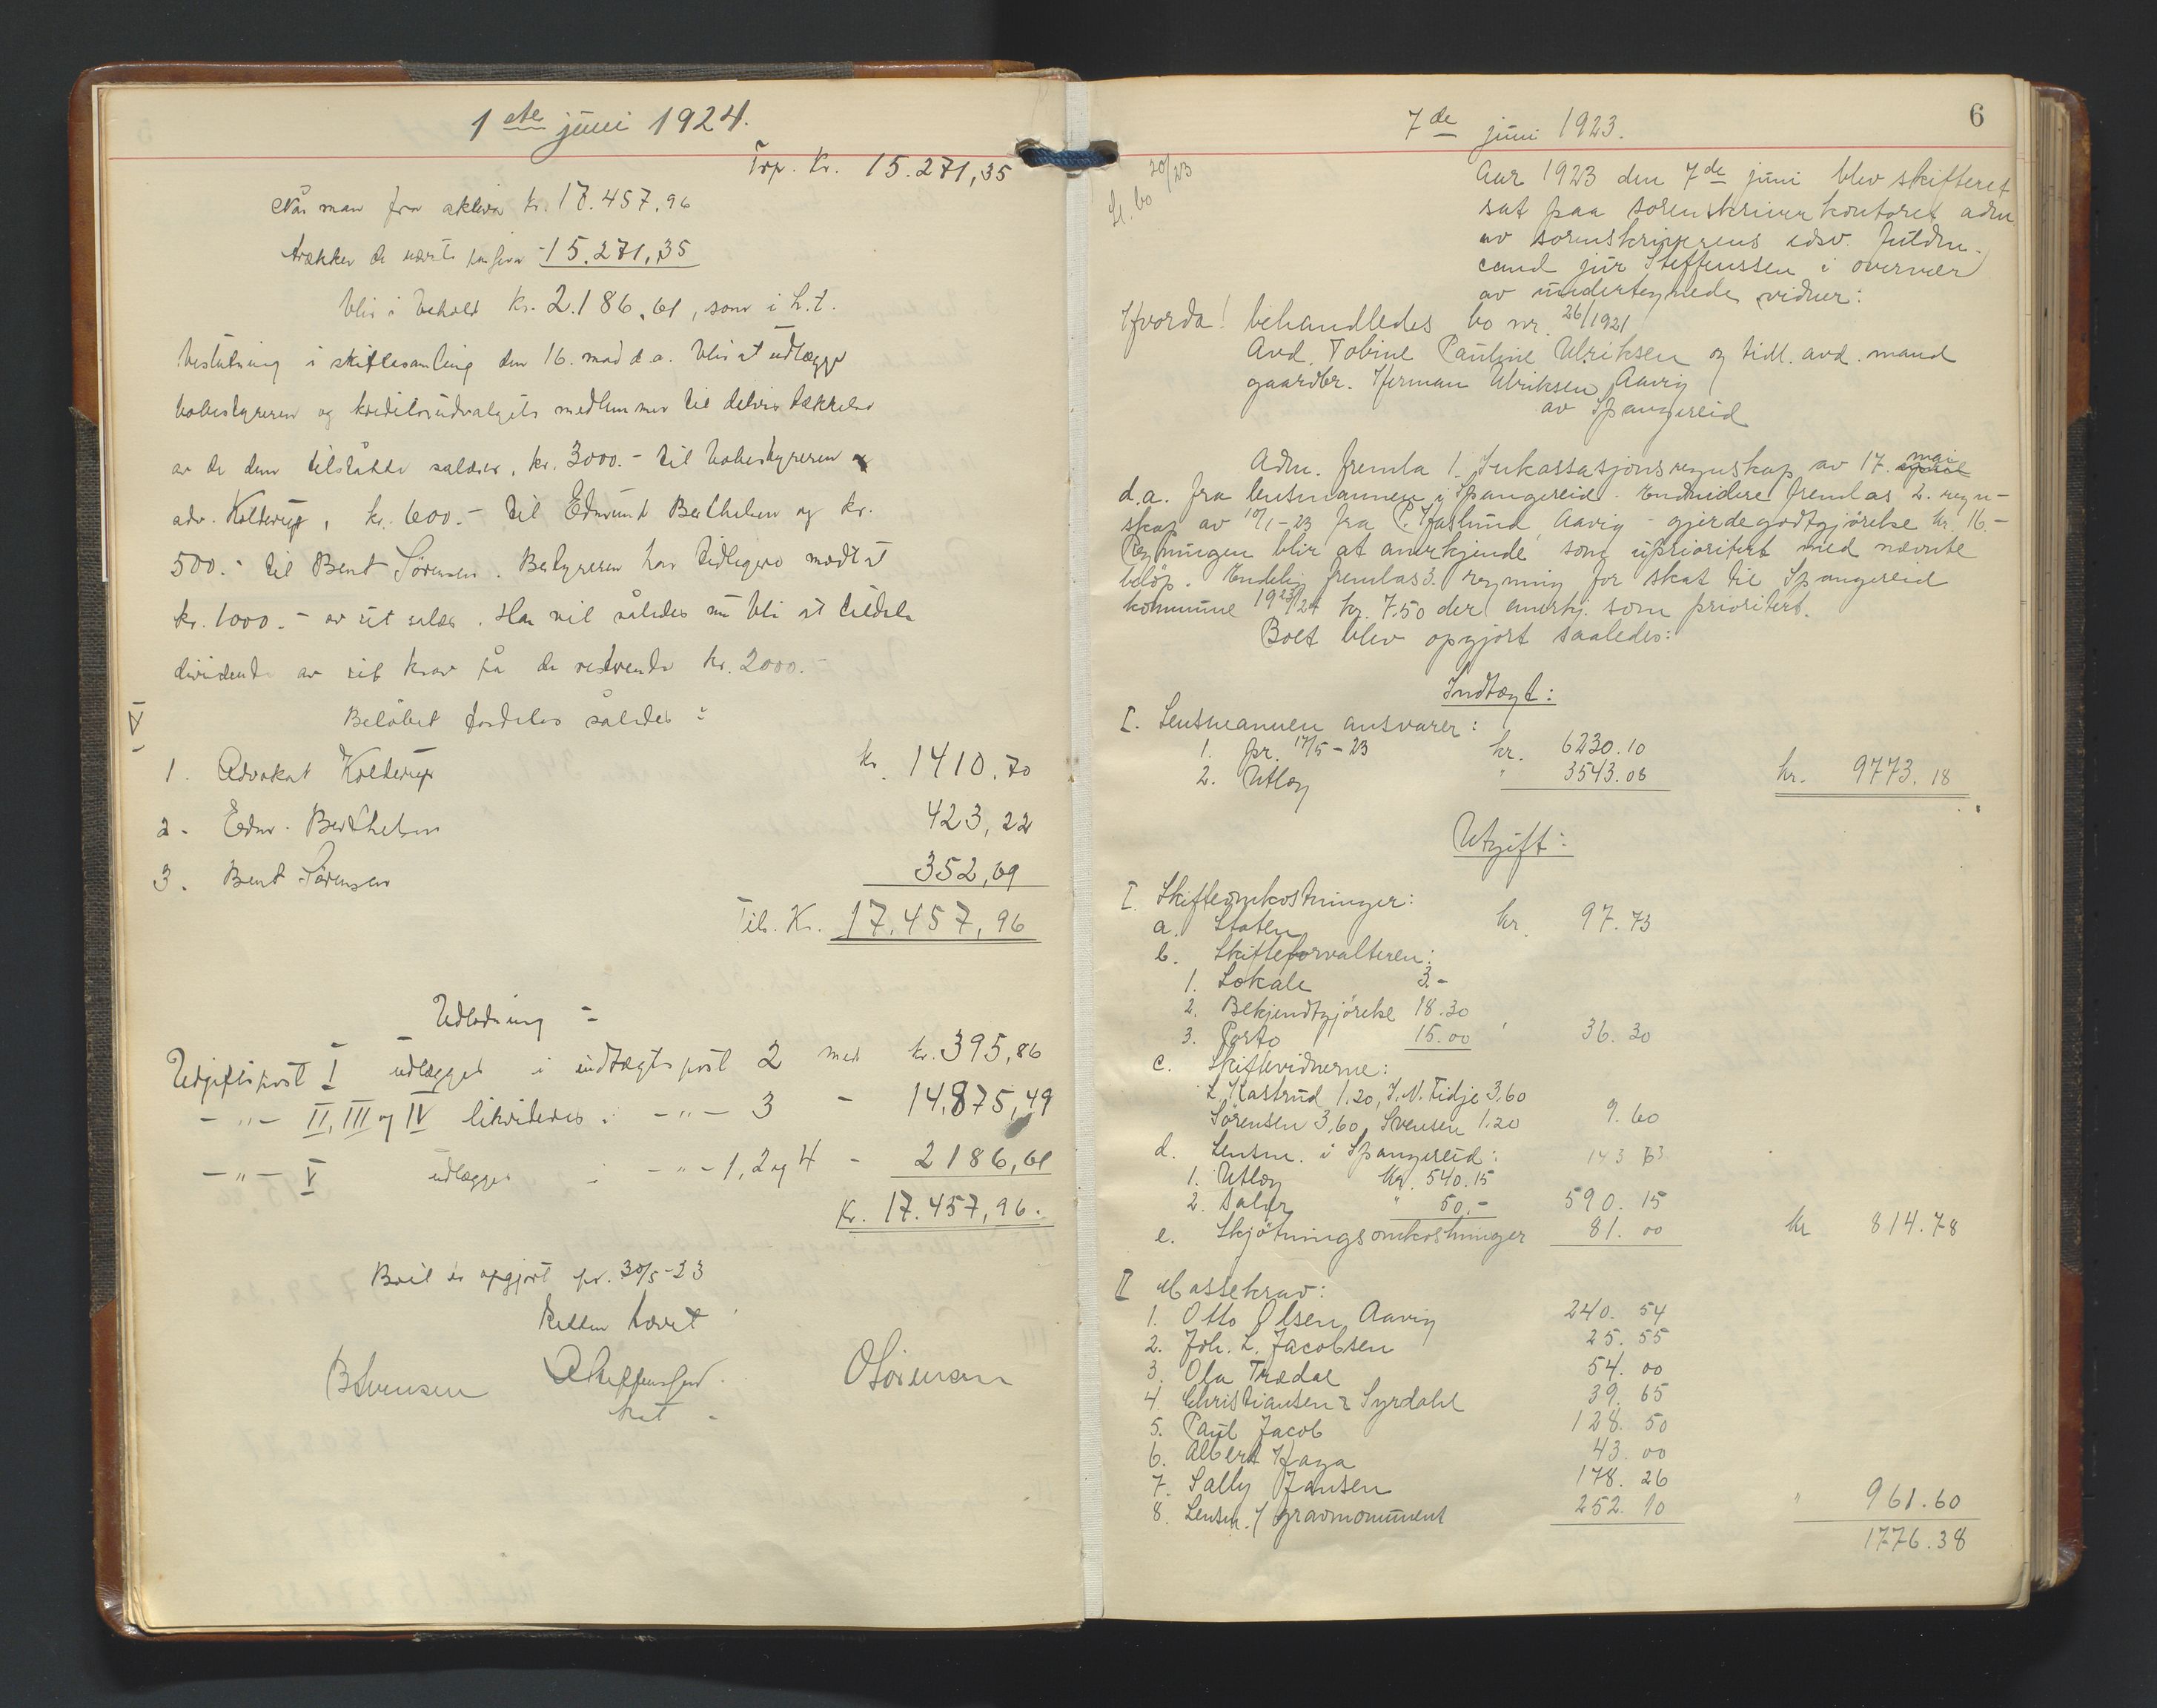 1ste juni 1924.
Trp. Kr. 15.271,35
Når man fra aktiva kr. 17.457,96
trækker de nævnte passiva - 15.271,35
blir i behold kr. 2.186,61, som i h.t.
beslutning i skiftesamling den 16. mad d.a. blir at udlægge
bobestyreren og kreditorudvalgets medlemmer til delvis dækkelse
av de dem tilståtte salærer, kr. 3000.- til bobestyreren
adv. Kolderup, kr. 600.- til Edmund Berthelsen og kr.
500.- til Bent Sörensen. Bestyreren har tidligere mottat
kr. 1000.- av sit salær. Han vil således nu bli at tildele
dividende av sit krav på de resterende kr. 2000.-
V
Beløbet fordeles således:
1. Advokat Kolderup kr. 1410,70
2. Edm. Berthelsen 423,22
3. Bent Sörensen 352,69
Tils. Kr. 17.457,96
Udlodning:
Udgiftspost I udlægges i indtægtspost 2 med kr. 395,86
-"- II, III og IV likvideres i -"- 3 - 14.875,49
-"- V udlægges i -"- 1, 2 og 4 - 2186,61
Kr. 17.457,96.
Boet er opgjort pr. 30/5-23
Retten hævet
BSvensen Steffenssen OSörensen
kst
6
7de juni 1923.
20/23
Aar 1923 den 7de juni blev skifteret
sat paa sorenskriverkontoret adm.
av sorenskriverens edsv. fuldm.
cand jur Steffenssen i overvær
av undertegnede vidner:
Hvorda! behandledes bo nr. 26/1921
Avd. Tobine Pauline Ulriksen og tidl. avd. mand
gaardbr. Herman Ulriksen Aavig
av Spangereid
Adm. fremla 1. Inkassasjonsregnskap av 17. april mai
d.a. fra lensmannen i Spangereid. Endvidere fremlas 2. regn-
skap av 10/1-23 fra P. Haslund, Aavig - gjerdegodtgjörelse kr. 16.-
Regningen blir at anerkjende som uprioritert med nævnte
belöp. Endelig fremlas 3. regning for skat til Spangereid
kommune 1923/24 kr. 7.50 der anerkj. som prioritert.
Boet blev opgjort saaledes:
Indtægt:
I. Lensmannen ansvarer:
1. pr. 17/5-23 kr. 6230.10
2. Utlæg " 3543.08 kr. 9773.18
Utgift:
I. Skifteomkostninger:
a. Staten kr. 97.73
b. Skifteforvalteren:
1. Lokale 3.-
2. Bekjendtgjörelse 18.30
3. Porto 15.00 36.30
c. Skiftevidnerne:
L. Kastrud 1.20, J.N. Tidje 3.60
Sörensen 3.60, Svensen 1.20 9.60
143 63
d. Lensm. i Spangereid:
1. Utlæg kr. 540.15
2. Salær " 50.- 590.15
e. Skjötningsomkostninger 81.00 kr 814.78
II Massekrav:
1. Otto Olsen Aavig 240.54
2. Joh. L. Jacobsen 25.55
3. Ola Trædal 54.00
4. Christiansen & Syrdahl 39.65
5. Paul Jacob 128.50
6. Albert Haga 43.00
7. Sally Jansen 178.26
8. Lensm. f/ gravmonument 252.10 " 961.60
1776.38